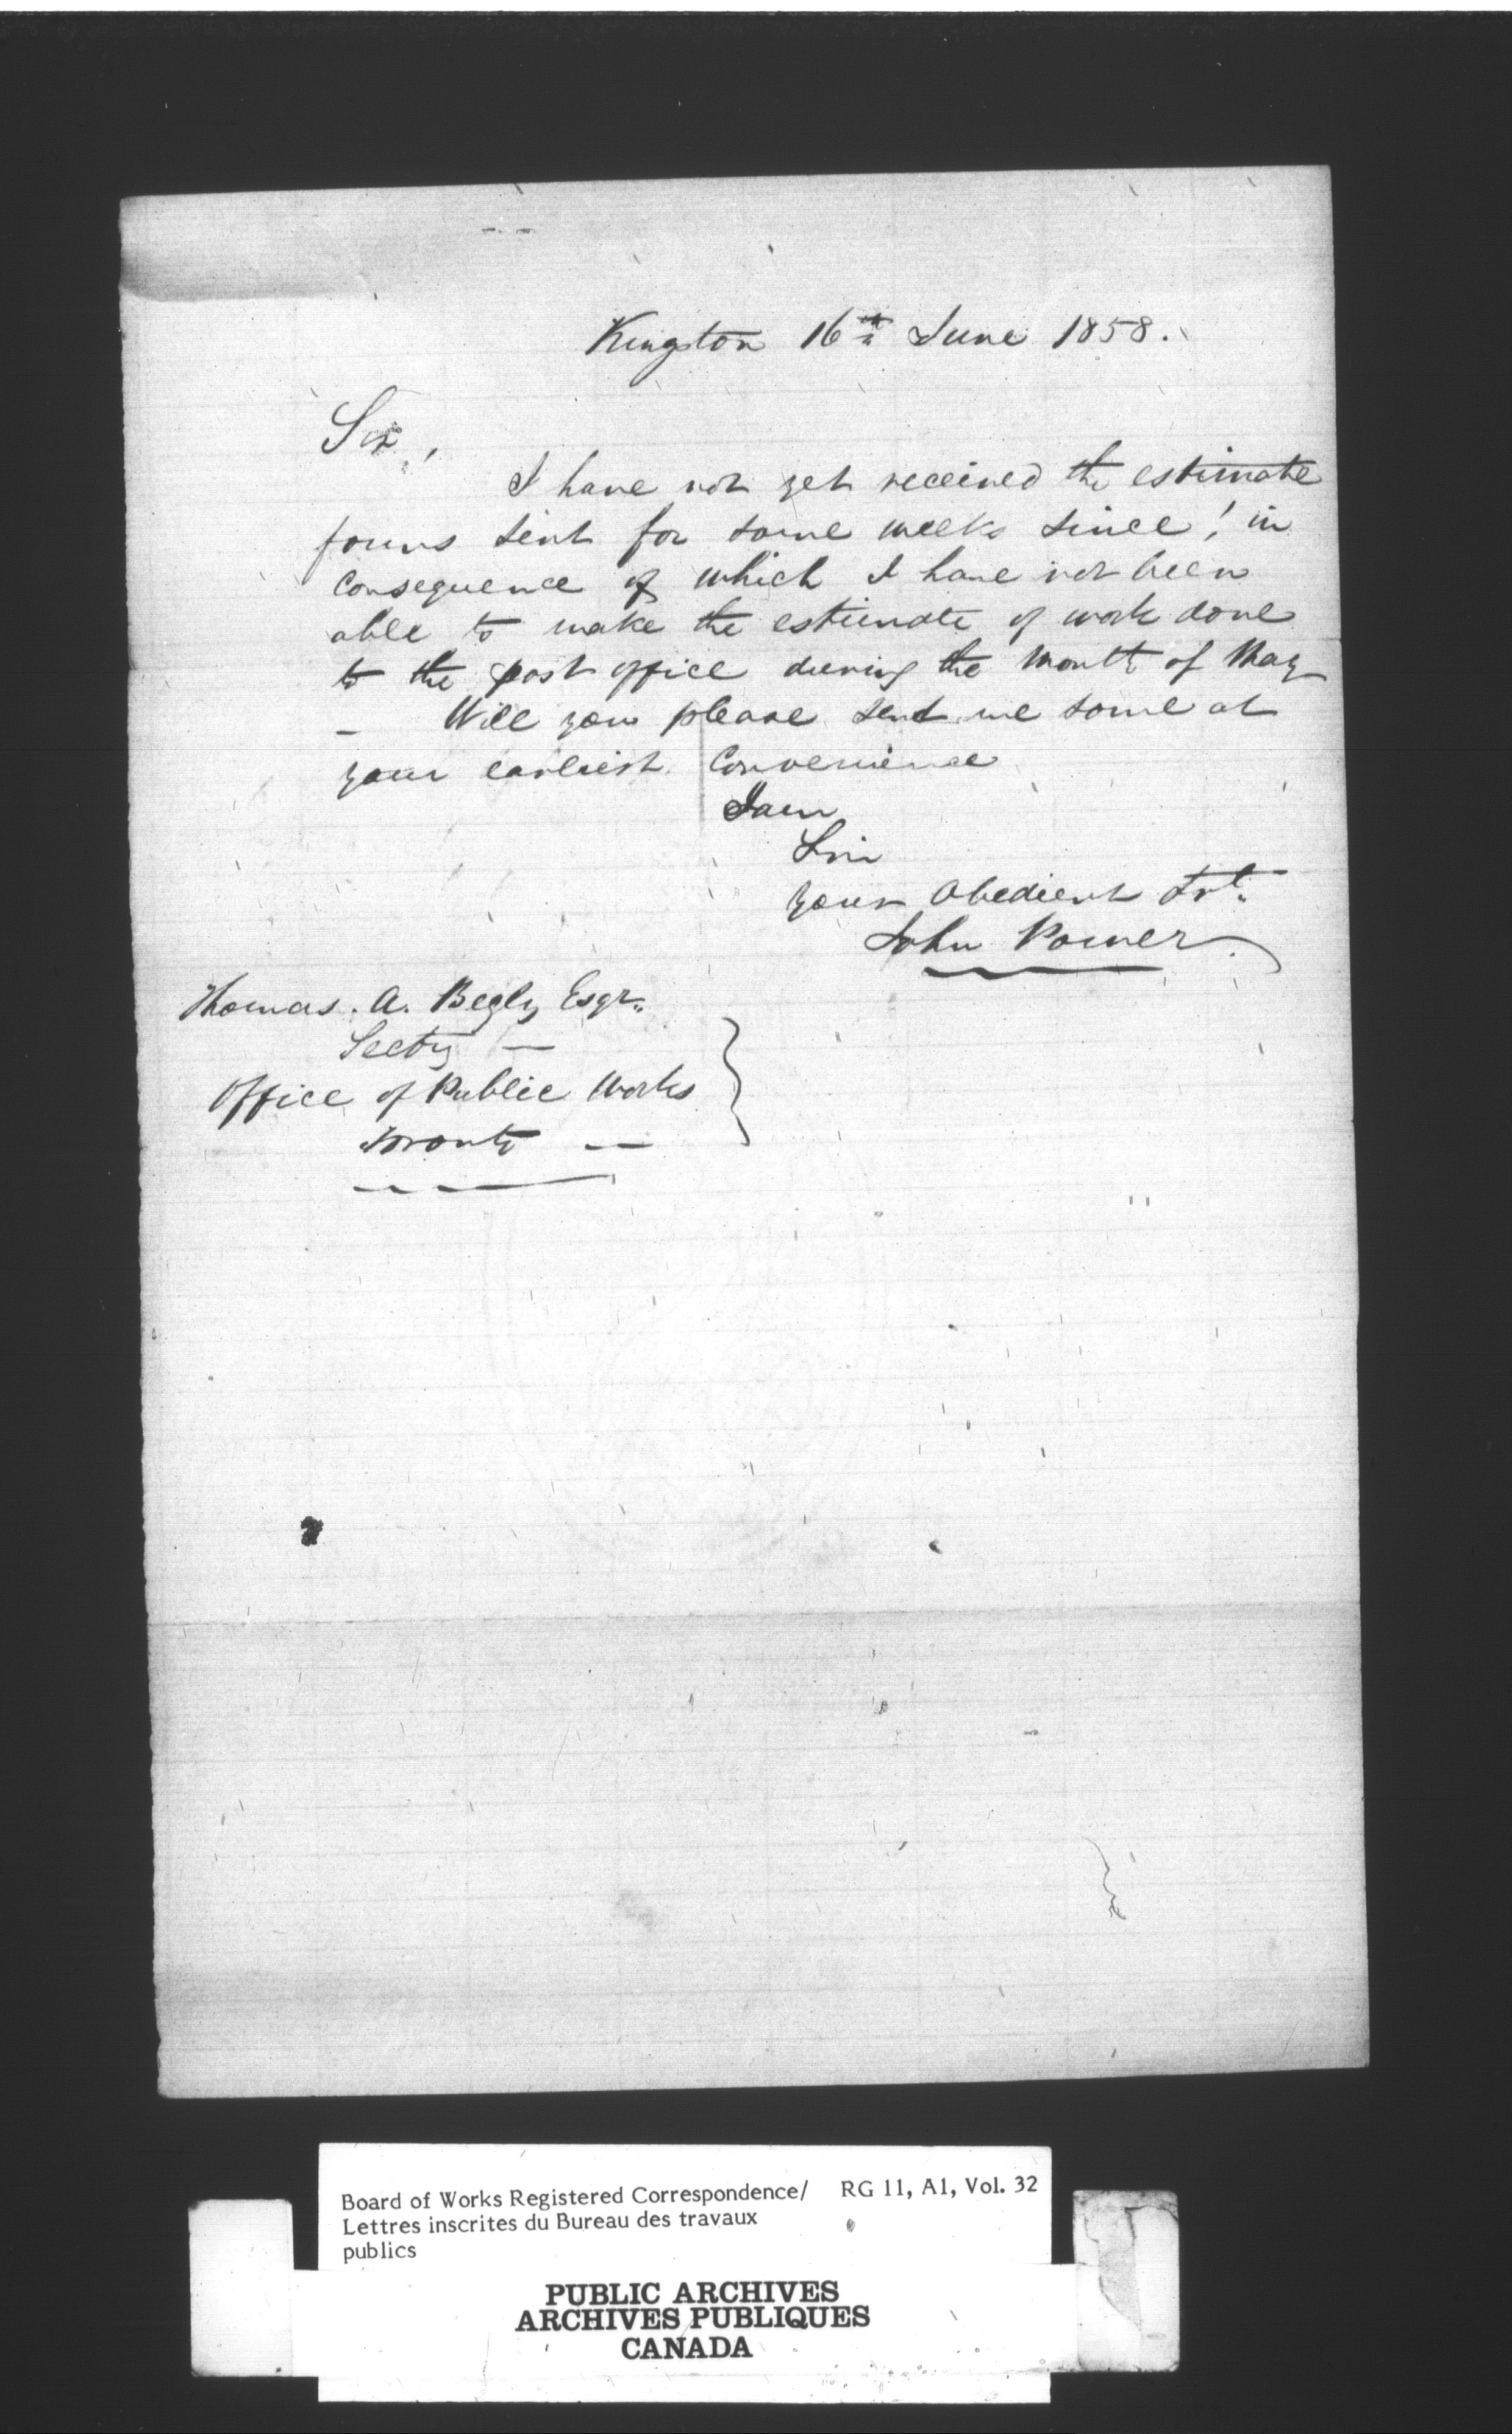 Kingston 16th June 1858.
Sir,
I have not yet received the estimate
forms sent for some weeks since! in
Consequence of which I have not been
able to make the estimate of work done
to the post office during the Month of May
- Will you please send me some at
your earliest Convenience
I am
Sir
your Obedient Svt.
John Power
Thomas. A. Begly Esqr.
Secty —
Office of Public Works
Toronto —
Board of Works Registered Correspondence/ RG 11, A1, Vol. 32
Lettres inscrites du Bureau des travaux
publics
PUBLIC ARCHIVES
ARCHIVES PUBLIQUES
CANADA